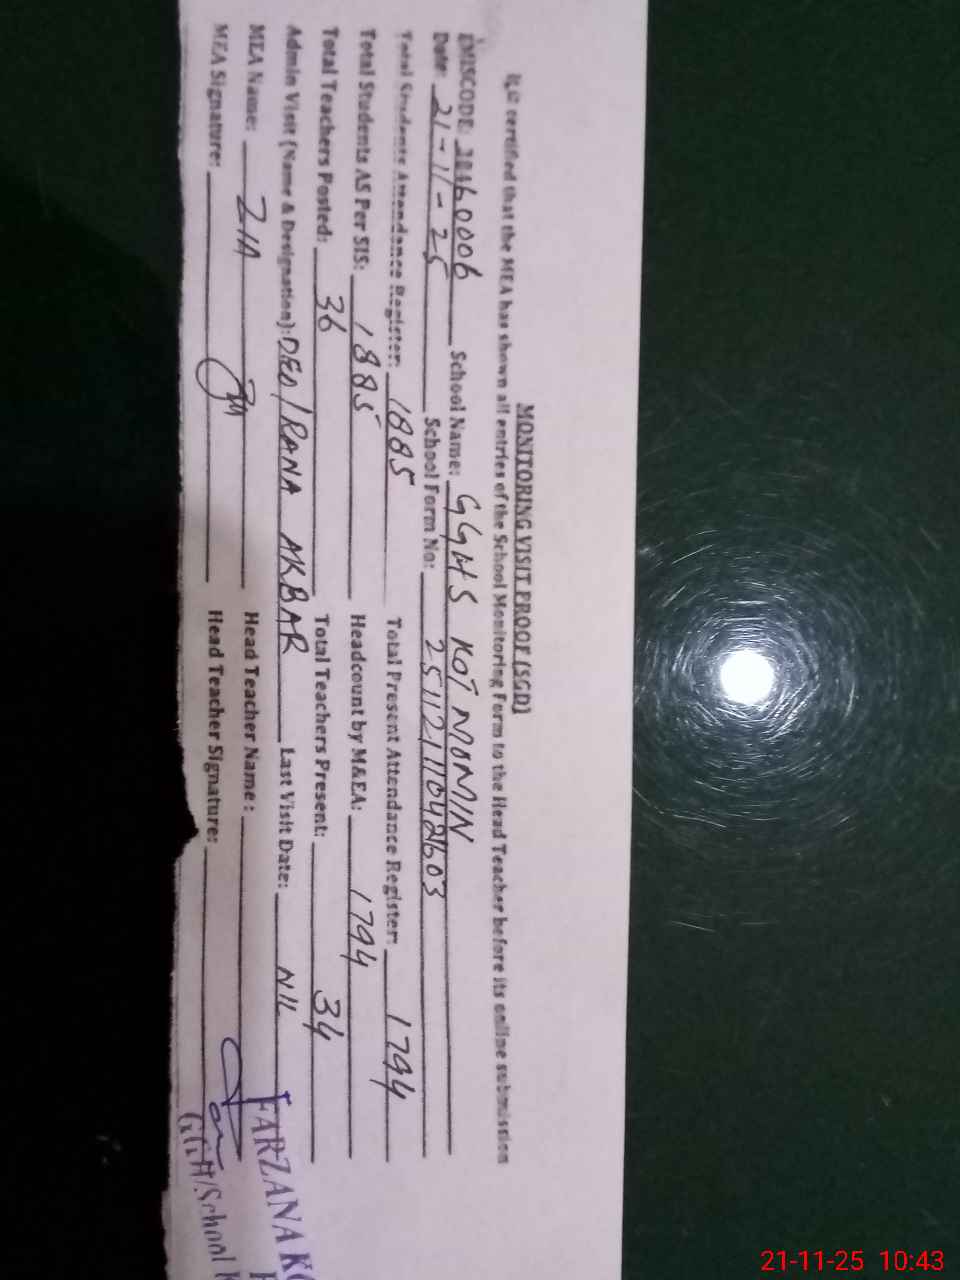 MONITORING VISIT PROOF (SGD)
It is certified that the MEA has shown all entries of the School Monitoring Form to the Head Teacher before its online submission
EMISCODE: 38460006 School Name: GGHS KOT MOMIN
Date: 21-11-25 School Form No:
Total Students Attendance Register: 1885 Total Present Attendance Register: 1794
Total Students AS Per SIS: 1885 Headcount by M&EA: 1794
Total Teachers Posted: 36 Total Teachers Present: 34
Admin Visit (Name & Designation): DEO/RANA AKBAR Last Visit Date: NIL
MEA Name: ZIA Head Teacher Name:
MEA Signature: Head Teacher Signature:
FARZANA
School
21-11-25 10:43